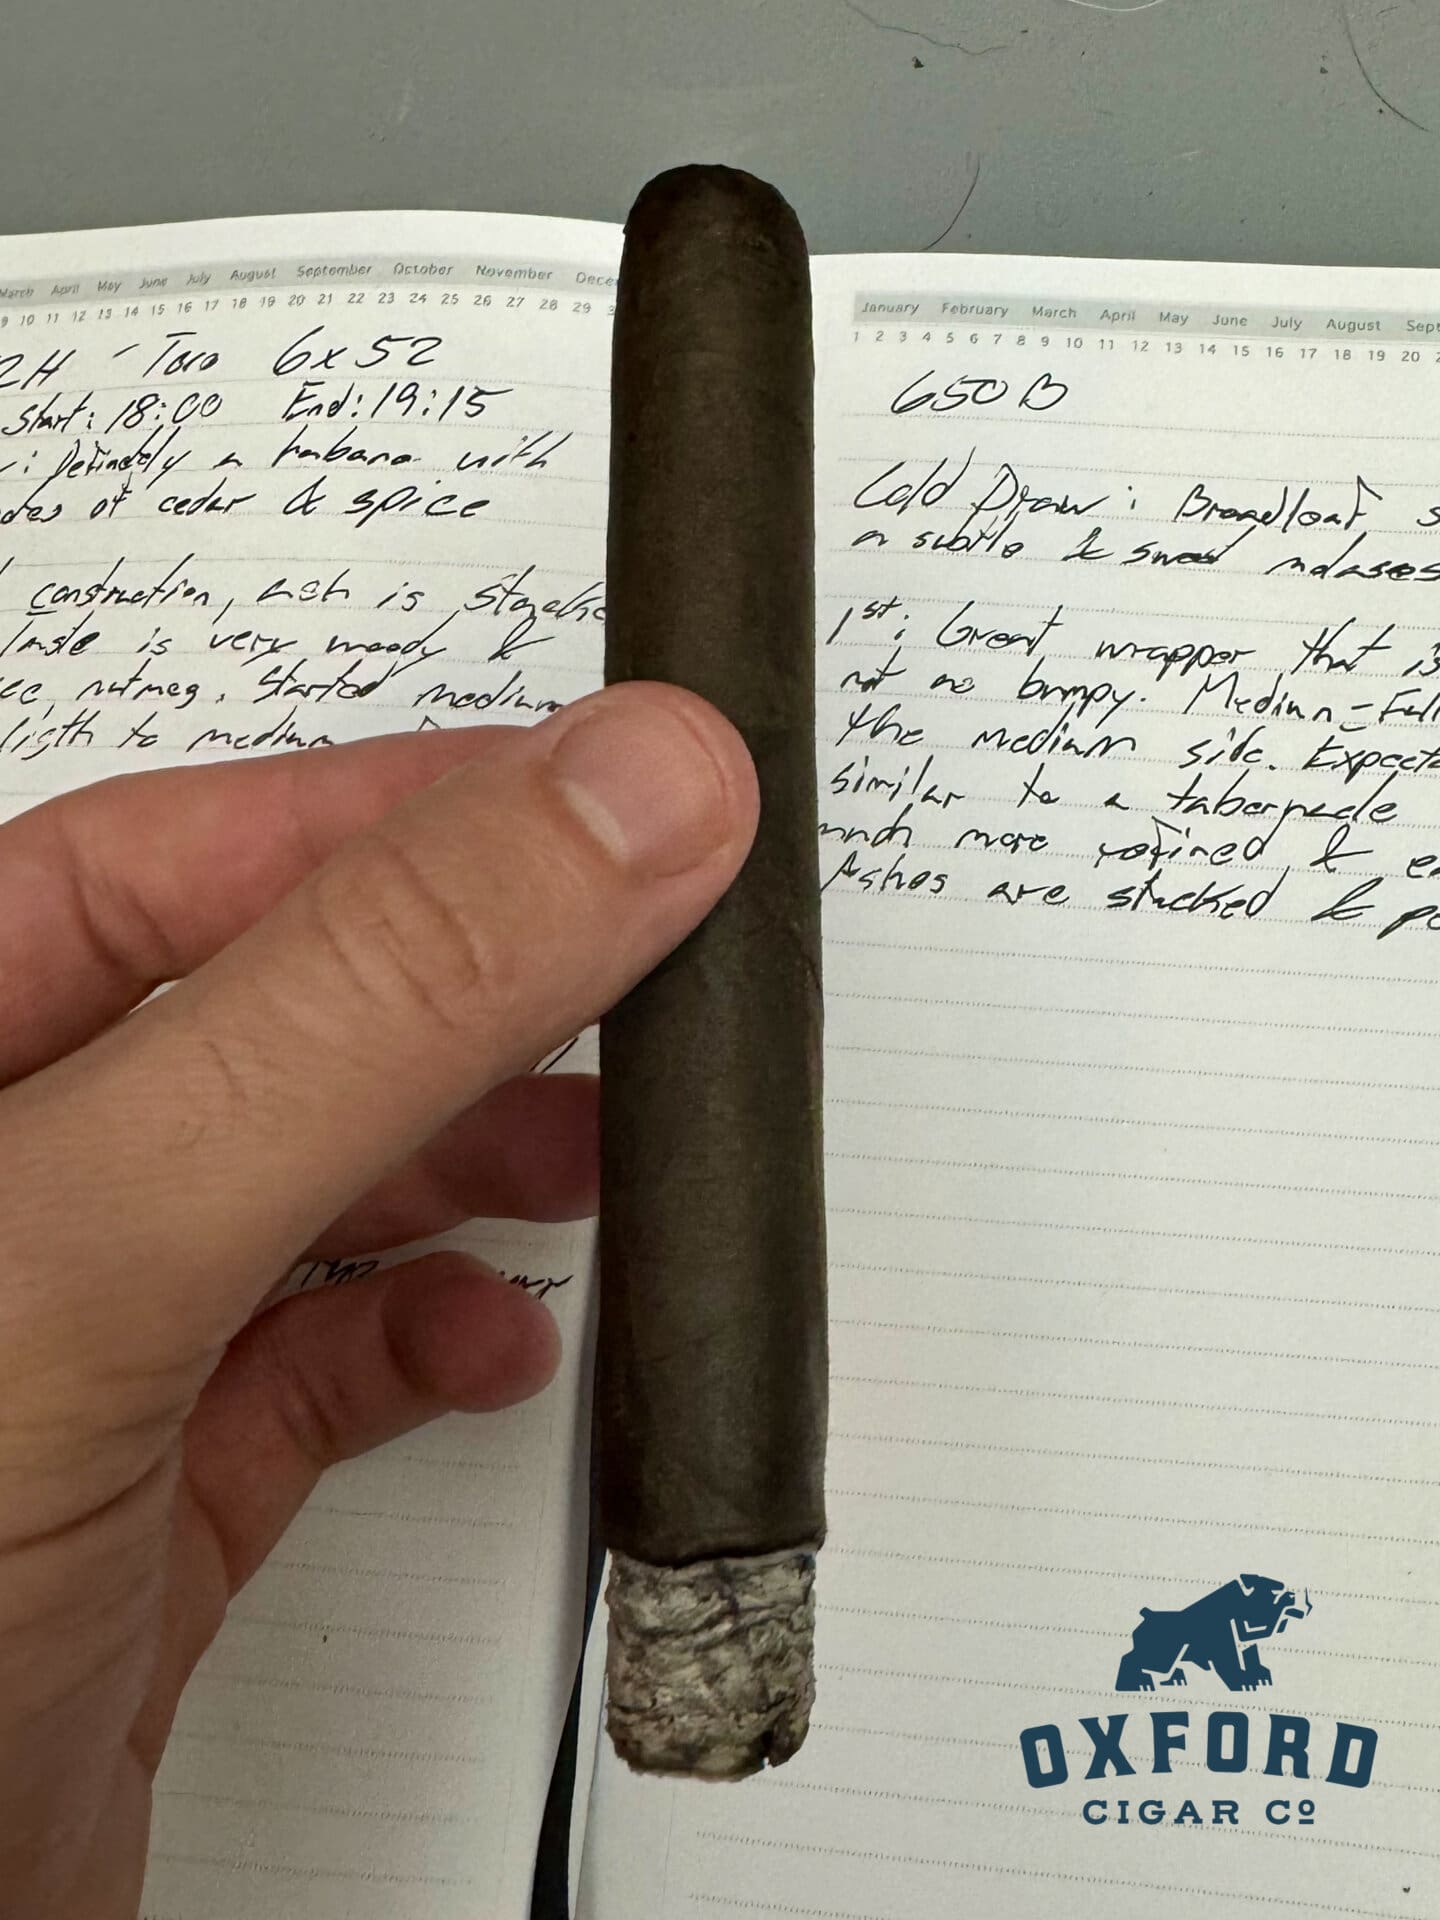 March April May June July August September October November Dece
9 10 11 12 13 14 15 16 17 18 19 20 21 22 23 24 25 26 27 28 29 3
2H - Toro 6x52
Start: 18:00 End: 19:15
: Definedly a habano with
of cedar & spice
construction, ash is
taste is very woody &
nutmeg. Started medium
ligth to medium
January February March April May June July August Sept
1 2 3 4 5 6 7 8 9 10 11 12 13 14 15 16 17 18 19 20 2
650 B
Cold Draw: Broadleaf s
a subtle & sweet molases
1st: Great wrapper that is
not as bumpy. Medium-Full
the medium side. Expecte
similar to a tabernacle
much more refined & e
Ashes are stacked & pe
OXFORD
CIGAR Cº